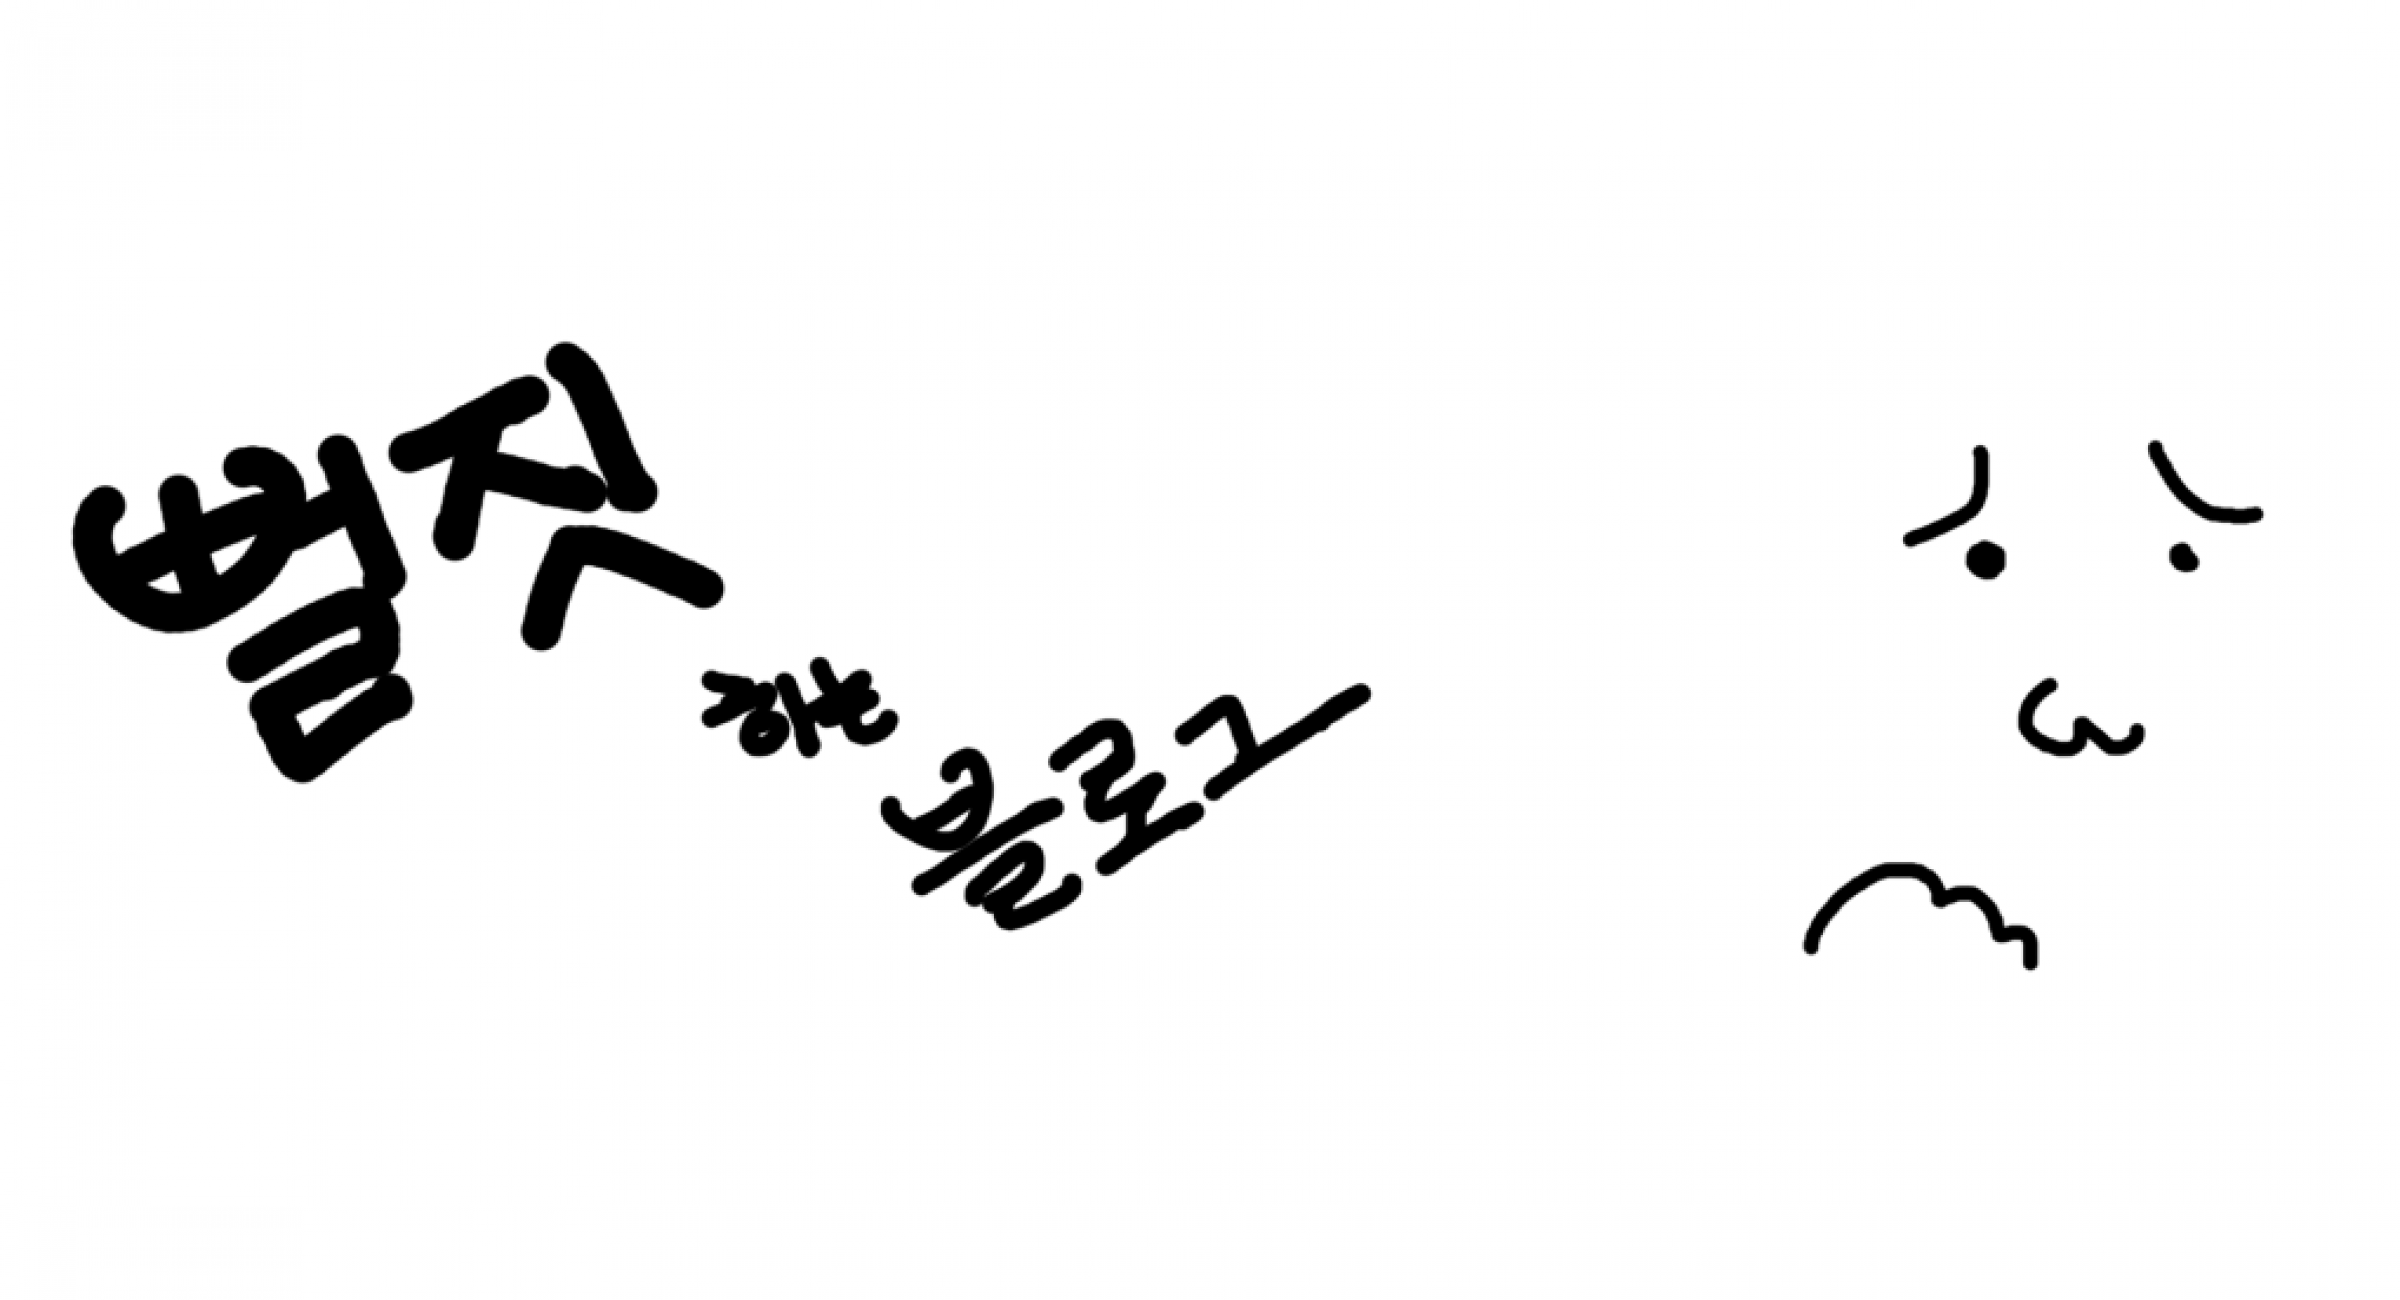 뻘짓 하는 블로그